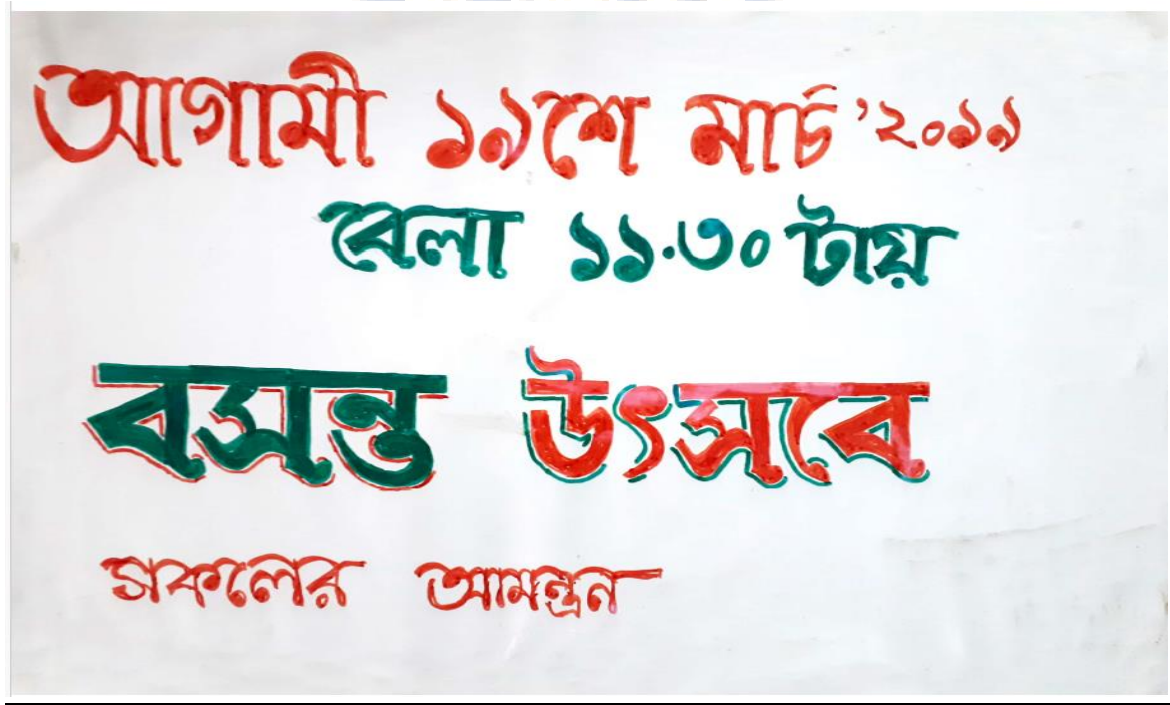 আগামী ১৯শে মার্চ '২০১৯
বেলা ১১.৩০ টায়
বসন্ত উৎসবে
সকলের আমন্ত্রন